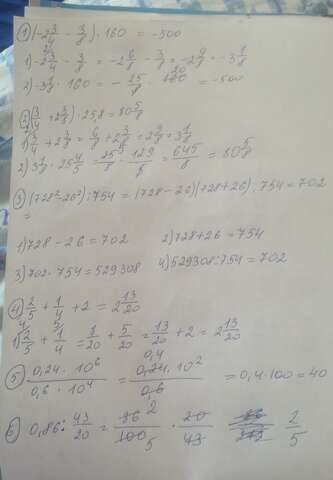 ① (-2 3/4 - 3/8) · 160 = -500
1) -2 3/4 - 3/8 = -2 6/8 - 3/8 = -2 9/8 = -3 1/8
2) -3 1/8 · 160 = - 25/8 · 160 20 = -500
② (3/4 + 2 3/8) · 25,8 = 80 5/8
1) 3/4 + 2 3/8 = 6/8 + 2 3/8 = 2 9/8 = 3 1/8
2) 3 1/8 · 25 4/5 = 25/8 · 129/5 = 645/8 = 80 5/8
③ (728² - 26²) : 754 = (728 - 26)(728 + 26) : 754 = 702
=
1) 728 - 26 = 702 2) 728 + 26 = 754
3) 702 · 754 = 529308 4) 529308 : 754 = 702
④ 2/5 + 1/4 + 2 = 2 13/20
1) 2/5 + 1/4 = /20 + 5/20 = 13/20 + 2 = 2 13/20
⑤ 0,24 · 10⁶ / 0,6 · 10⁴ = 0,4 0,24 · 10² / 0,6 = 0,4 · 100 = 40
⑥ 0,86 : 43/20 = 86 2 / 100 5 · 20/43 2/5